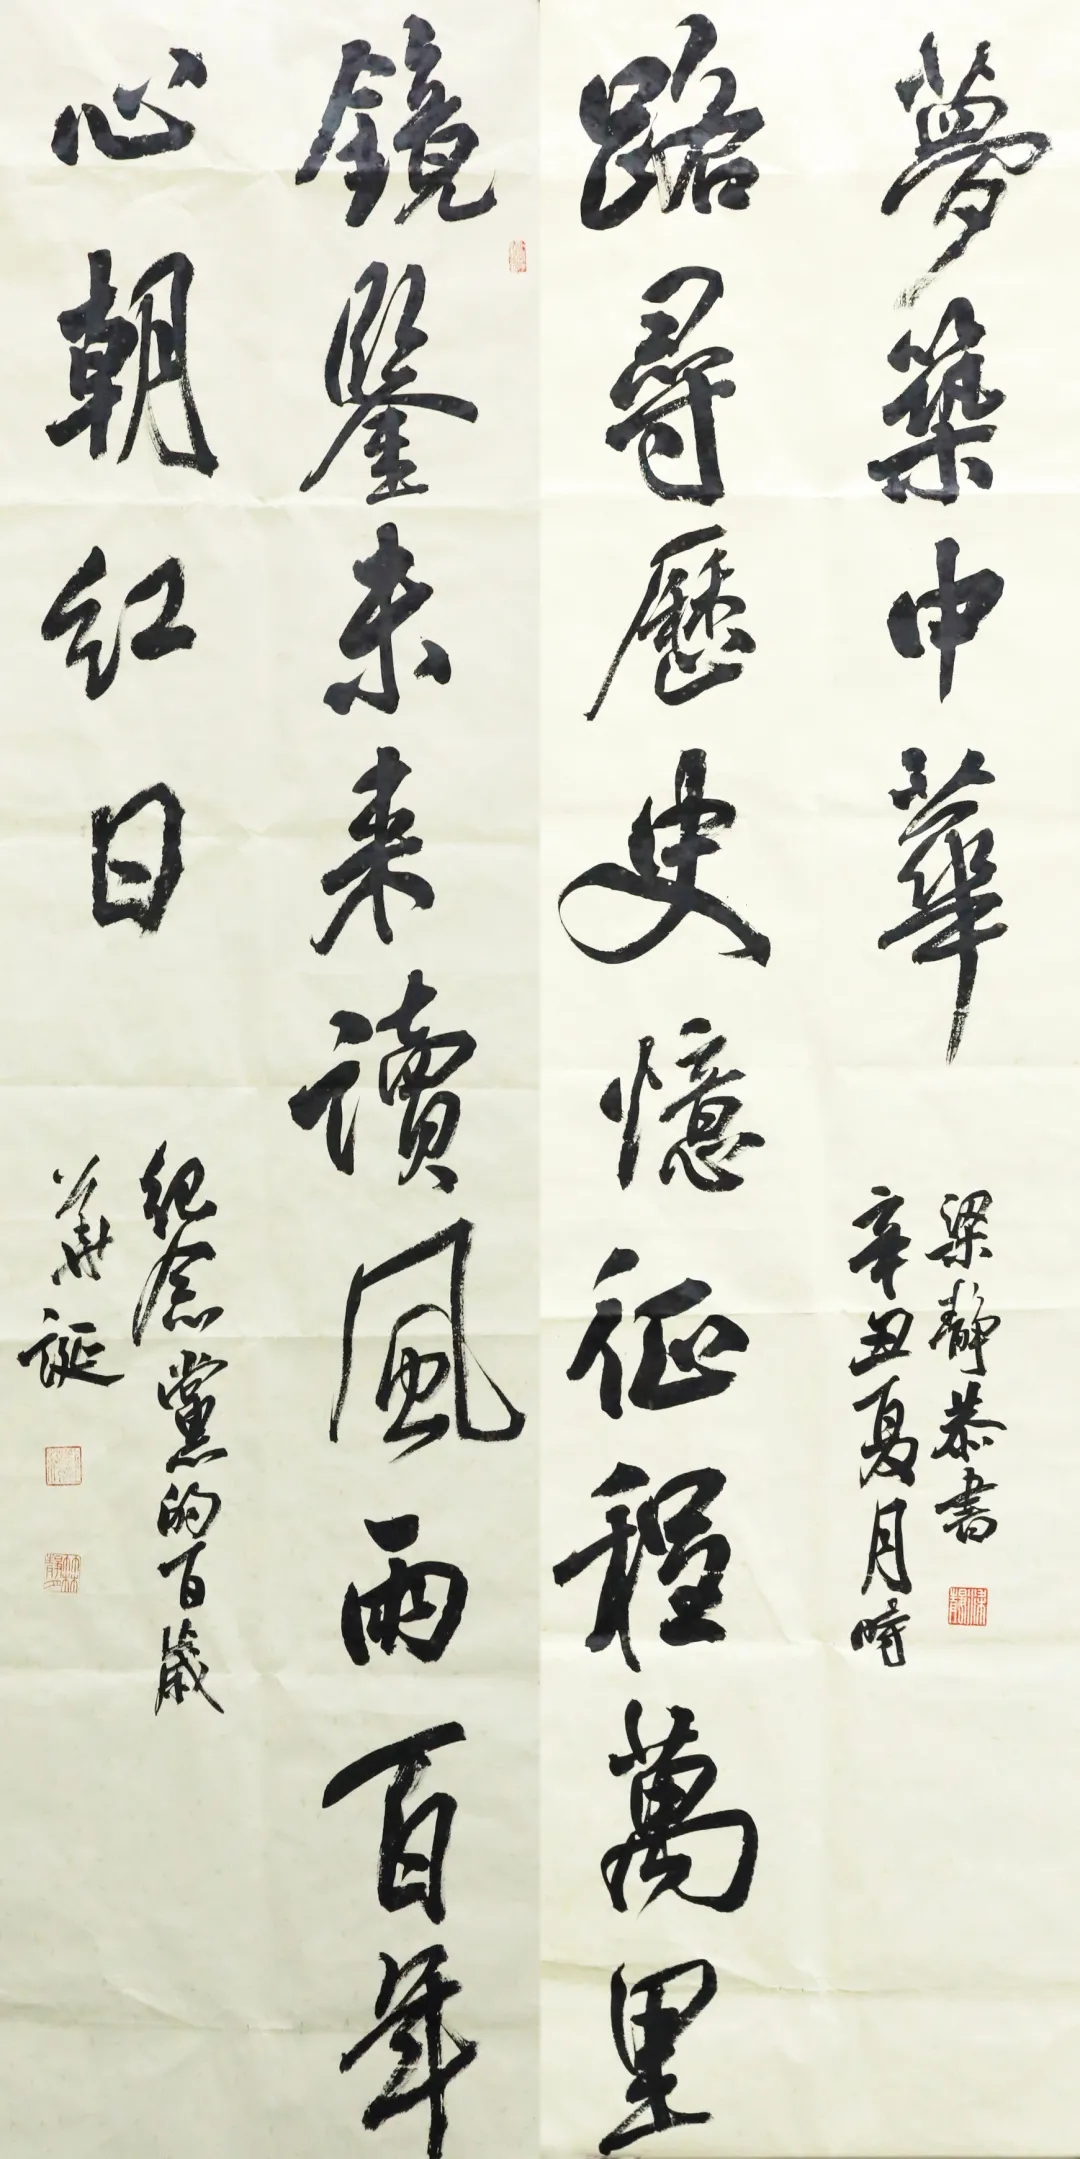 鏡鑒未來讀風雨百年
心朝紅日
紀念黨的百歲
華誕
路尋歷史憶征程萬里
夢築中華
辛丑夏月時
梁靜恭書